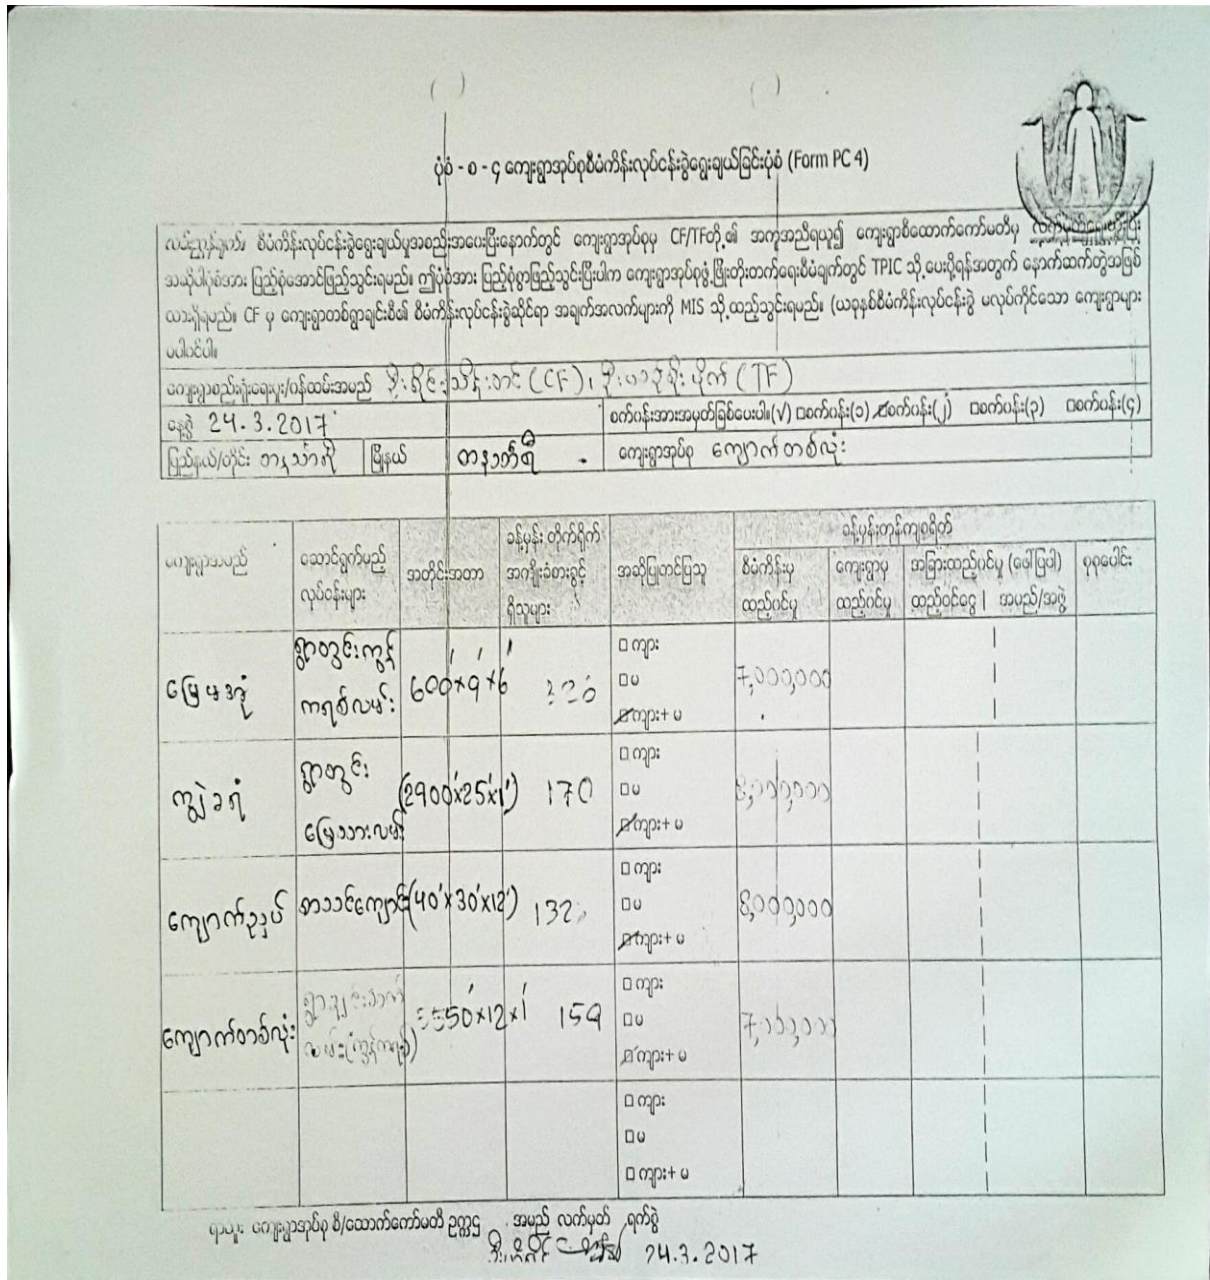 ပုံစံ - စ - ၄ ကျေးရွာအုပ်စုစီမံကိန်းလုပ်ငန်းခွဲရွေးချယ်ခြင်းပုံစံ (Form PC 4)
လမ်းညွှန်ချက်၊ စီမံကိန်းလုပ်ငန်းခွဲရွေးချယ်မှုအစည်းအဝေးပြီးနောက်တွင် ကျေးရွာအုပ်စုမှ CF/TFတို့၏ အကူအညီရယူ၍ ကျေးရွာစီ/ထောက်ကော်မတီမှ
အဆိုပါပုံစံအား ပြည့်စုံအောင်ဖြည့်သွင်းရမည်။ ဤပုံစံအား ပြည့်စုံစွာဖြည့်သွင်းပြီးပါက ကျေးရွာအုပ်စုဖွံ့ဖြိုးတိုးတက်ရေးစီမံချက်တွင် TPIC သို့ပေးပို့ရန်အတွက် နောက်ဆက်တွဲအဖြစ်
ထားရှိရမည်။ CF မှ ကျေးရွာတစ်ရွာချင်းစီ၏ စီမံကိန်းလုပ်ငန်းခွဲဆိုင်ရာ အချက်အလက်များကို MIS သို့ထည့်သွင်းရမည်။ (ယခုနှစ်စီမံကိန်းလုပ်ငန်းခွဲ မလုပ်ကိုင်သော ကျေးရွာများ
မပါဝင်ပါ။
ကျေးရွာစည်းရုံးရေးမှူး/ဝန်ထမ်းအမည် (CF) ၊ (TF)
နေ့စွဲ 24.3.2017 စက်ဝန်းအားအမှတ်ခြစ်ပေးပါ။(√) □စက်ဝန်း(၁) ☑စက်ဝန်း(၂) □စက်ဝန်း(၃) □စက်ဝန်း(၄)
ပြည်နယ်/တိုင်း တနင်္သာရီ မြို့နယ် တနင်္သာရီ ကျေးရွာအုပ်စု ကျောက်တစ်လုံး
ကျေးရွာအမည် ဆောင်ရွက်မည့် လုပ်ငန်းများ အတိုင်းအတာ ခန့်မှန်း တိုက်ရိုက် အကျိုးခံစားခွင့် ရှိသူများ အဆိုပြုတင်ပြသူ ခန့်မှန်းကုန်ကျစရိတ်
စီမံကိန်းမှ ထည့်ဝင်မှု ကျေးရွာမှ ထည့်ဝင်မှု အခြားထည့်ဝင်မှု (ဖော်ပြပါ) ထည့်ဝင်ငွေ | အမည်/အဖွဲ့ စုစုပေါင်း
ရွာတွင်းကွန်ကရစ်လမ်း 600'x9'x6' □ ကျား □ မ ☑ ကျား+ မ 7,000,000
ကျွဲခရံ ရွာတွင်း မြေသားလမ်း (2900'x25'x1') 170 □ ကျား □ မ ☑ ကျား+ မ 8,000,000
စာသင်ကျောင်း (40'x30'x12') 132 □ ကျား □ မ ☑ ကျား+ မ 8,000,000
ကျောက်တစ်လုံး 159 □ ကျား □ မ ☑ ကျား+ မ 7,000,000
□ ကျား □ မ □ ကျား+ မ
ကျေးရွာအုပ်စု စီ/ထောက်ကော်မတီ ဥက္ကဋ္ဌ အမည် လက်မှတ် ရက်စွဲ
24.3.2017